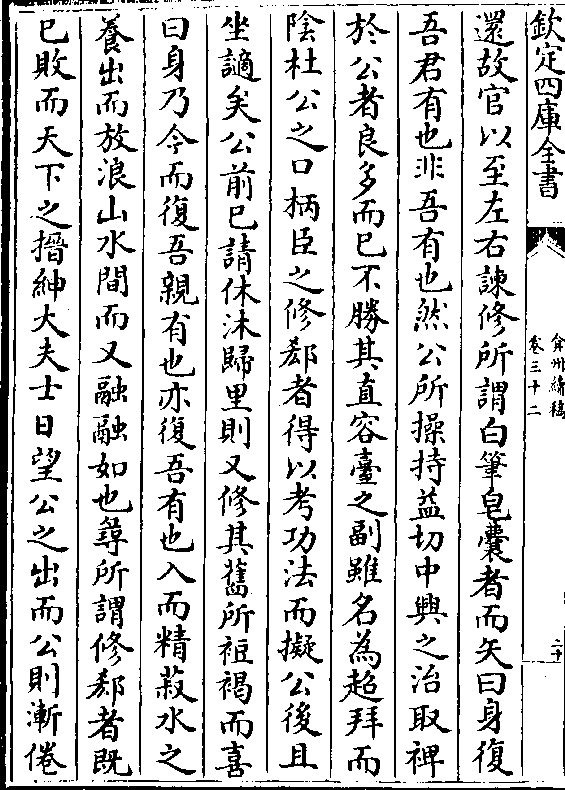 欽定四庫全書
弇州續稿
卷三十二
二十
還故官以至左右諫修所謂白筆皂囊者而矢曰身復
吾君有也非吾有也然公所操持益切中興之治取裨
於公者良多而已不勝其直容臺之副雖名為超拜而
陰杜公之口柄臣之修郄者得以考功法而擬公後且
坐謫矣公前已請休沐歸里則又修其舊所袒褐而喜
曰身乃今而復吾親有也亦復吾有也入而精菽水之
養出而放浪山水間而又融融如也尋所謂修郄者既
已敗而天下之搢紳大夫士日望公之出而公則漸倦